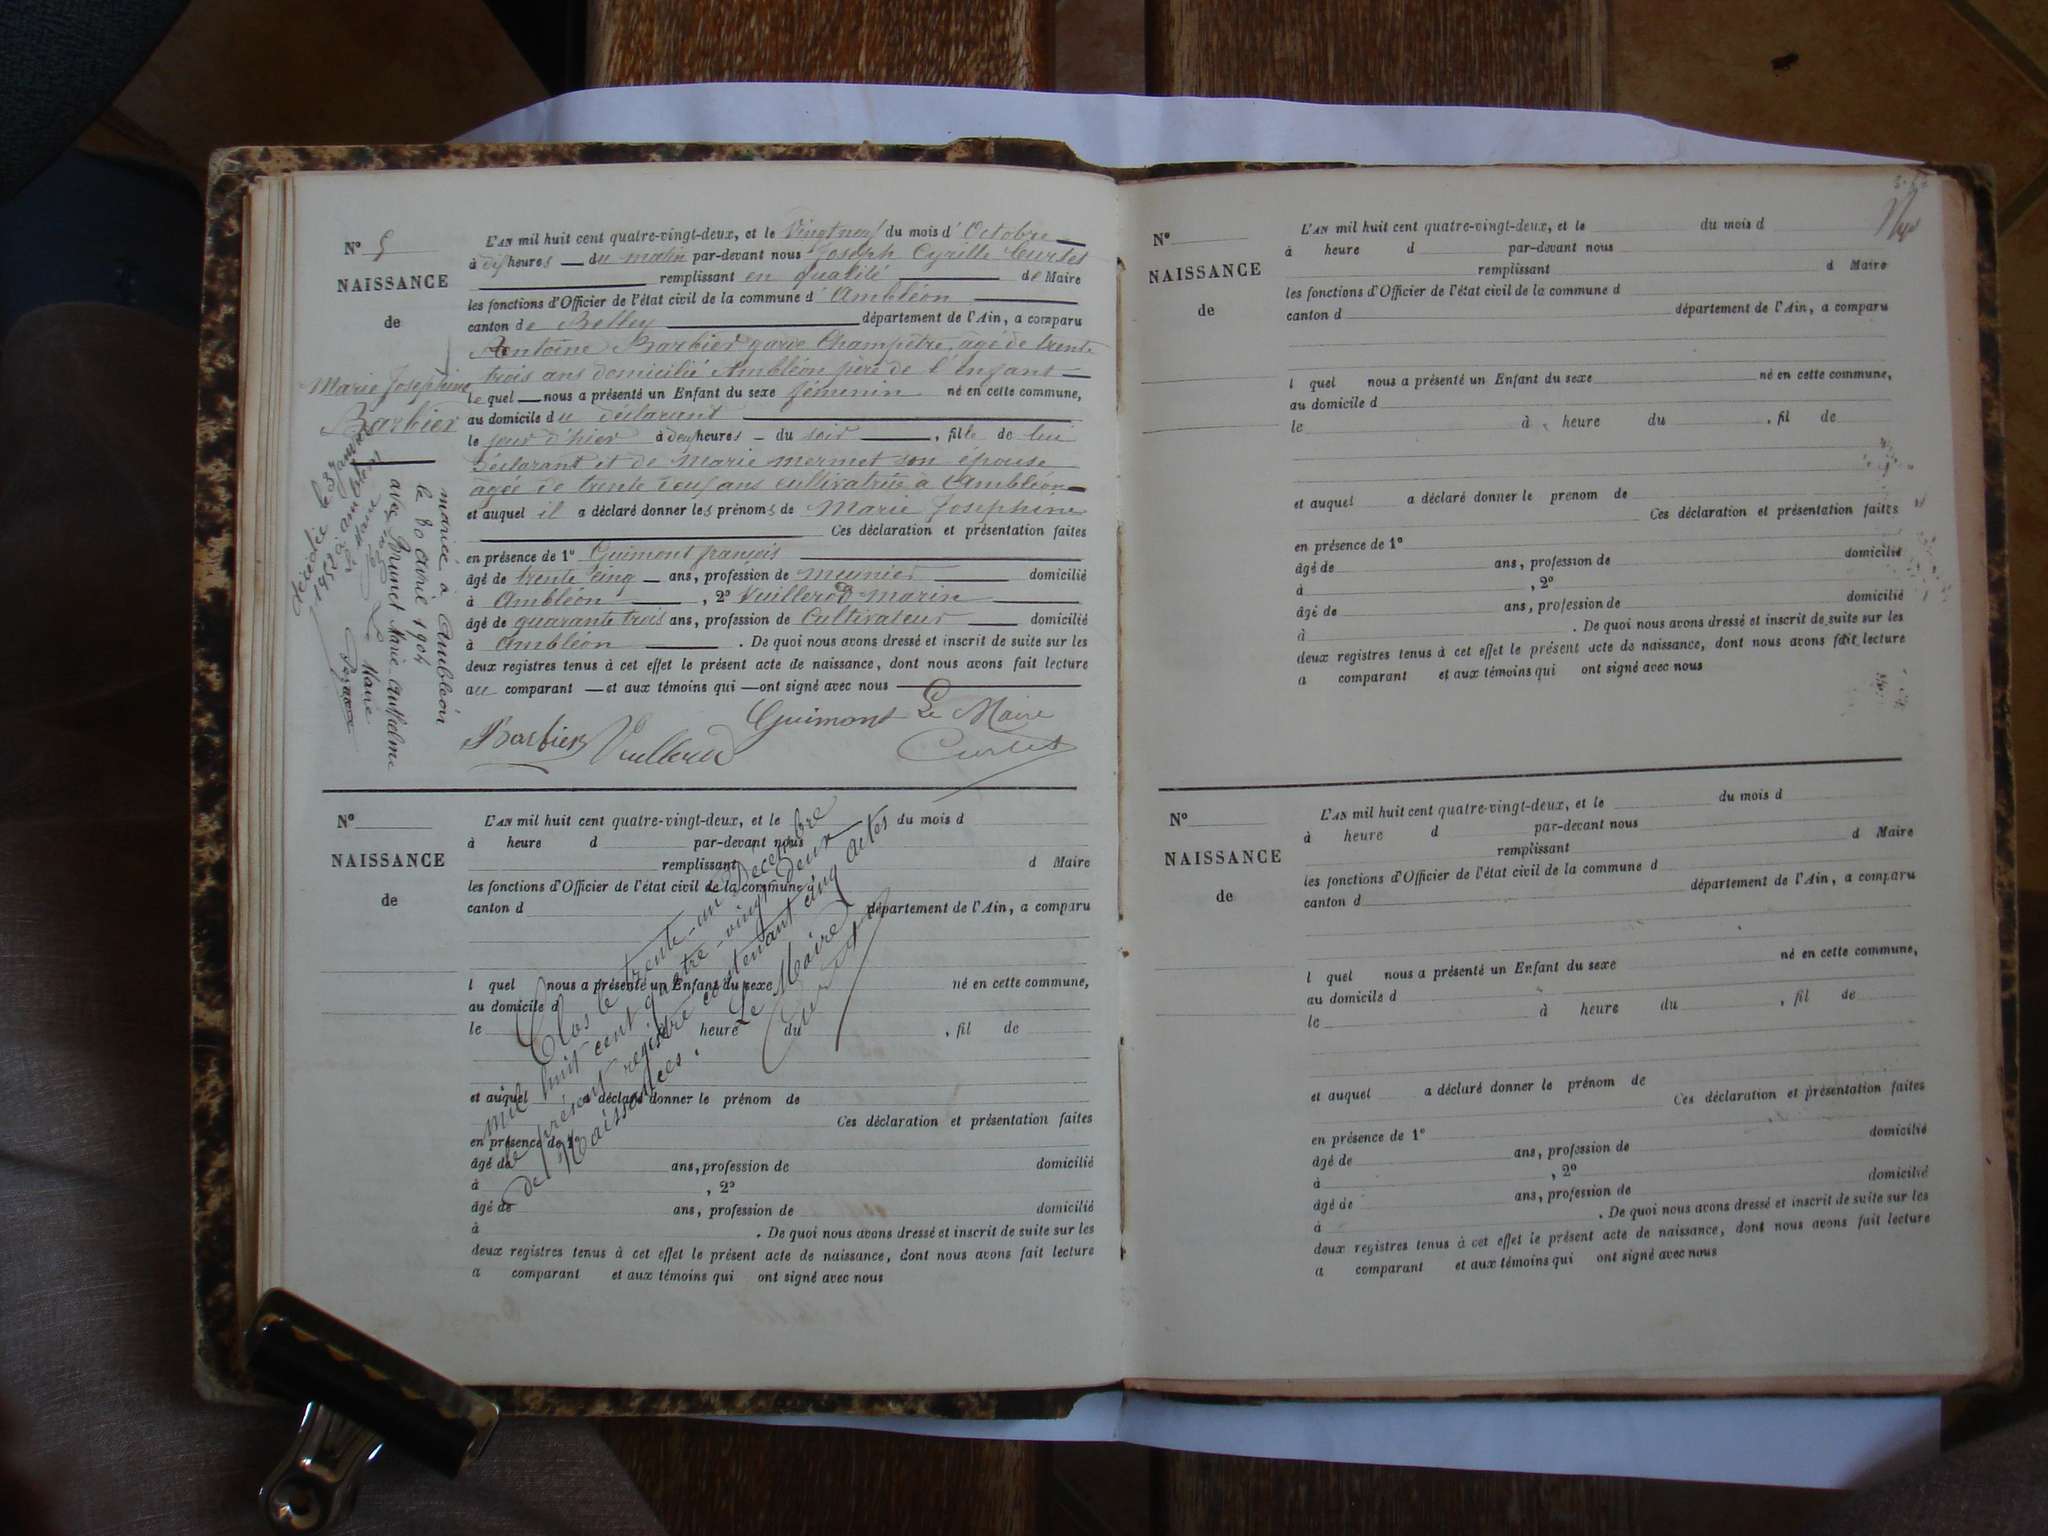 N° 5
NAISSANCE
de
Marie Josephine
Barbier
L'AN mil huit cent quatre-vingt-deux, et le Vingtneuf du mois d' Octobre
à dix heures du matin par-devant nous Joseph Cyrille Curtet
remplissant en qualité de Maire
les fonctions d'Officier de l'état civil de la commune d' Ambléon
canton de Belley département de l'Ain, a comparu
Antoine Barbier garde Champêtre, âgé de trente
trois ans domicilié Ambléon père de l'enfant
le quel nous a présenté un Enfant du sexe féminin né en cette commune,
au domicile du déclarant
le jour d'hier à deux heures du soir, fille de lui
Déclarant et de Marie mermet son épouse
âgée de trente deux ans cultivatrice a Ambléon
et auquel il a déclaré donner les prénoms de Marie Josephine
Ces déclaration et présentation faites
en présence de 1° Guimont françois
âgé de trente cinq ans, profession de meunier domicilié
à Ambléon, 2° Vuillerod marin
âgé de quarante trois ans, profession de Cultivateur domicilié
à Ambléon. De quoi nous avons dressé et inscrit de suite sur les
deux registres tenus à cet effet le présent acte de naissance, dont nous avons fait lecture
au comparant et aux témoins qui ont signé avec nous
Barbier Vuillerod Guimont Le Maire
Curtet
mariée à Ambléon
le 80 avril 1904
avec Brunet Marie Anthelme
Le Maire
décédée le 3 janvier
1952 à Ambléon
Le Maire
N°
NAISSANCE
de
L'AN mil huit cent quatre-vingt-deux, et le du mois d
à heure d par-devant nous
remplissant d Maire
les fonctions d'Officier de l'état civil de la commune d
canton d département de l'Ain, a comparu
l quel nous a présenté un Enfant du sexe né en cette commune,
au domicile d
le à heure du , fil de
et auquel a déclaré donner le prénom de
Ces déclaration et présentation faites
en présence de 1°
âgé de ans, profession de domicilié
à , 2°
âgé de ans, profession de domicilié
à . De quoi nous avons dressé et inscrit de suite sur les
deux registres tenus à cet effet le présent acte de naissance, dont nous avons fait lecture
a comparant et aux témoins qui ont signé avec nous
Clos le trente-un Décembre
mil huit cent quatre-vingt Deux
le présent registre contenant cinq actes
de Naissances.
Le Maire
Curtet
N°
NAISSANCE
de
L'AN mil huit cent quatre-vingt-deux, et le du mois d
à heure d par-devant nous
remplissant d Maire
les fonctions d'Officier de l'état civil de la commune d
canton d département de l'Ain, a comparu
l quel nous a présenté un Enfant du sexe né en cette commune,
au domicile d
le à heure du , fil de
et auquel a déclaré donner le prénom de
Ces déclaration et présentation faites
en présence de 1°
âgé de ans, profession de domicilié
à , 2°
âgé de ans, profession de domicilié
à . De quoi nous avons dressé et inscrit de suite sur les
deux registres tenus à cet effet le présent acte de naissance, dont nous avons fait lecture
a comparant et aux témoins qui ont signé avec nous
N°
NAISSANCE
de
L'AN mil huit cent quatre-vingt-deux, et le du mois d
à heure d par-devant nous
remplissant d Maire
les fonctions d'Officier de l'état civil de la commune d
canton d département de l'Ain, a comparu
l quel nous a présenté un Enfant du sexe né en cette commune,
au domicile d
le à heure du , fil de
et auquel a déclaré donner le prénom de
Ces déclaration et présentation faites
en présence de 1°
âgé de ans, profession de domicilié
à , 2°
âgé de ans, profession de domicilié
à . De quoi nous avons dressé et inscrit de suite sur les
deux registres tenus à cet effet le présent acte de naissance, dont nous avons fait lecture
a comparant et aux témoins qui ont signé avec nous